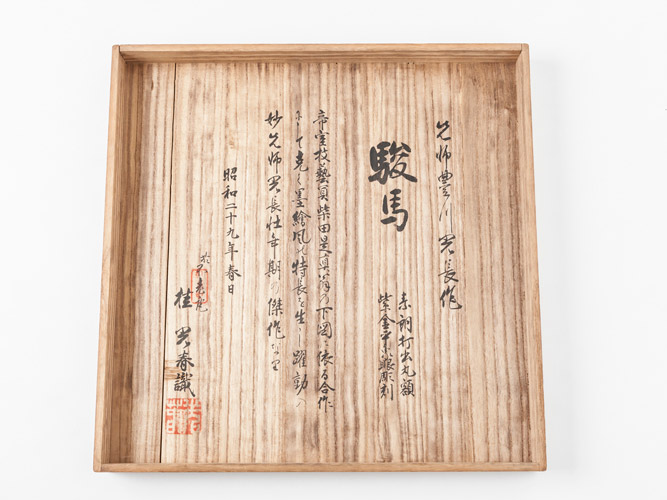 先師豊川光長作
駿馬
素銅打出丸額
紫金平象嵌彫刻
帝室技藝員柴田是真翁の下図に依る合作
にして克く墨繪風の特長を生し躍動の
妙先師光長壮年期の傑作なり
昭和二十九年春日
桂光春識